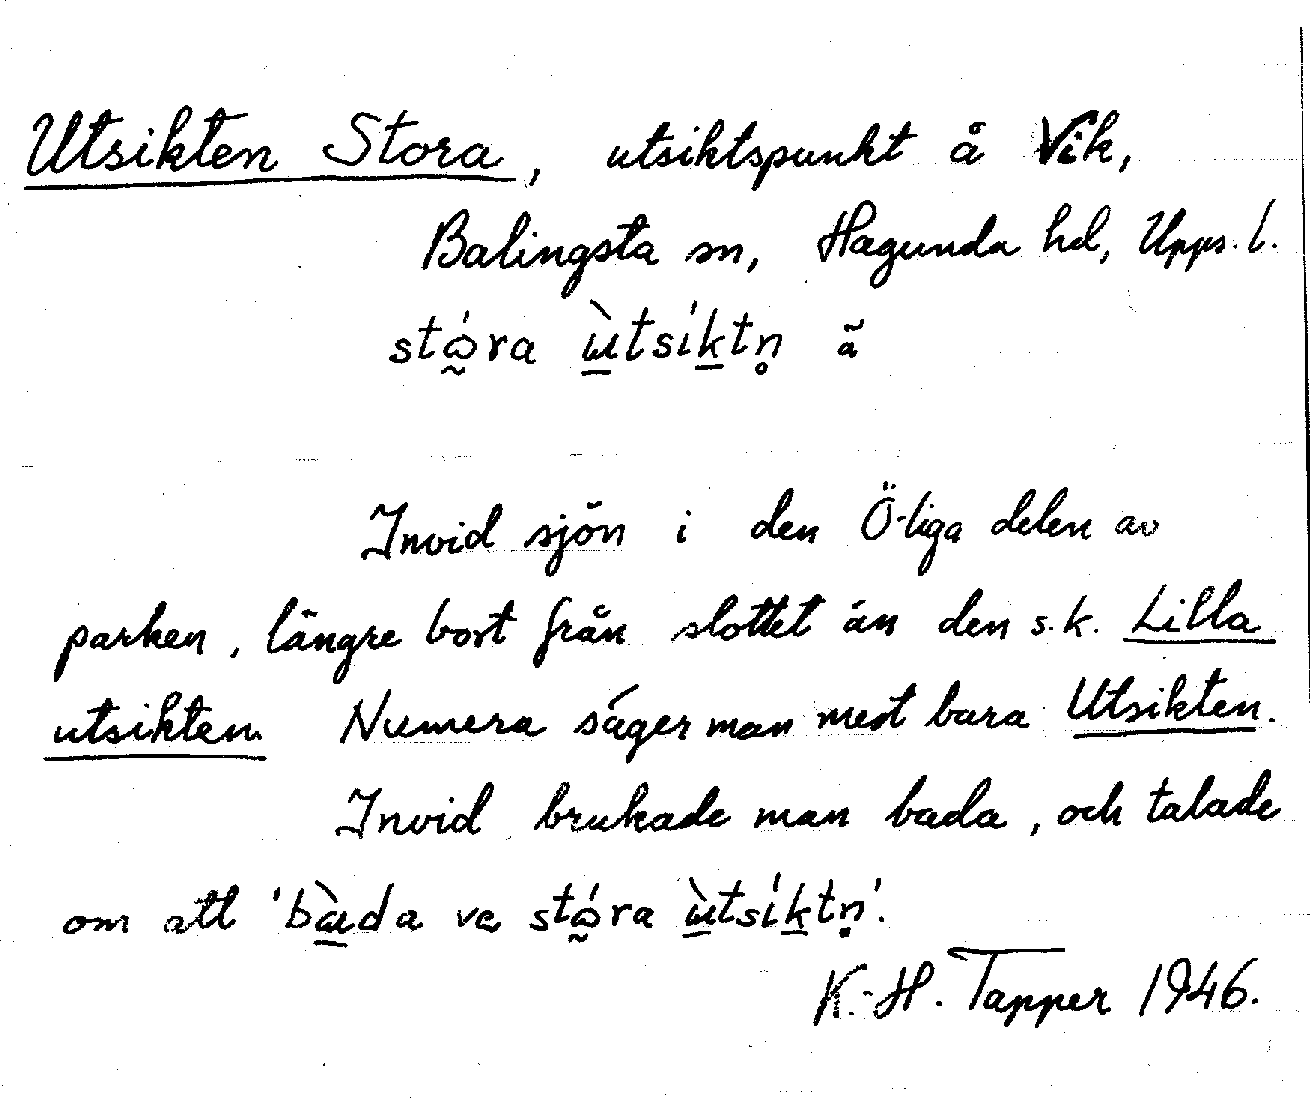 Utsikten Stora, utsiktspunkt å Vik,
Balingsta sn, Hagunda hd, Upps. l.
stώ̰ra ɯ̱̀tsíḵtn̥ ã
Invid sjön i den Ö-liga delen av
parken, längre bort från slottet än den s.k. Lilla
utsikten. Numera säger man mest bara Utsikten.
Invid brukade man bada, och talade
om att 'bɑ̱̀da ve stώ̰ra ɯ̱̀tsíḵtn̥'.
K.-H. Tapper 1946.